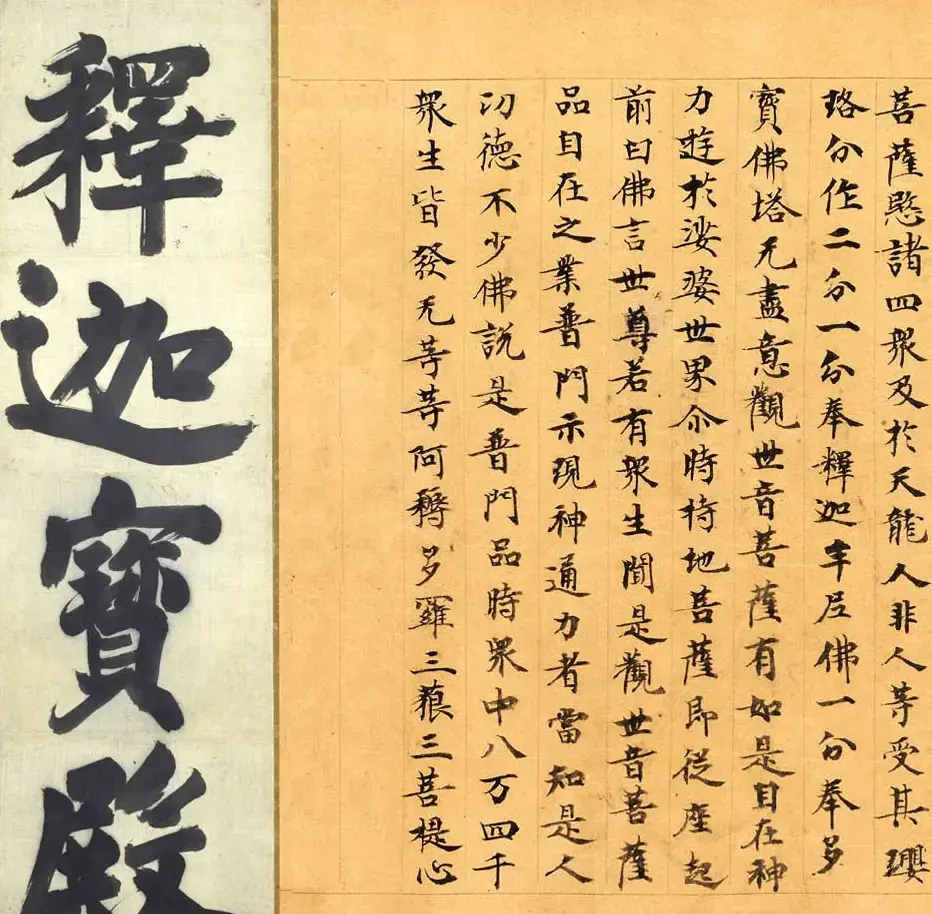 菩薩愍諸四衆及於天龍人非人等受其瓔
珞分作二分一分奉釋迦牟尼佛一分奉多
寶佛塔无盡意觀世音菩薩有如是自在神
力遊於娑婆世界尒時持地菩薩即從座起
前曰佛言世尊若有衆生聞是觀世音菩薩
品自在之業普門示現神通力者當知是人
功德不少佛說是普門品時衆中八万四千
衆生皆發无等等阿耨多羅三藐三菩提心
釋迦寶殿